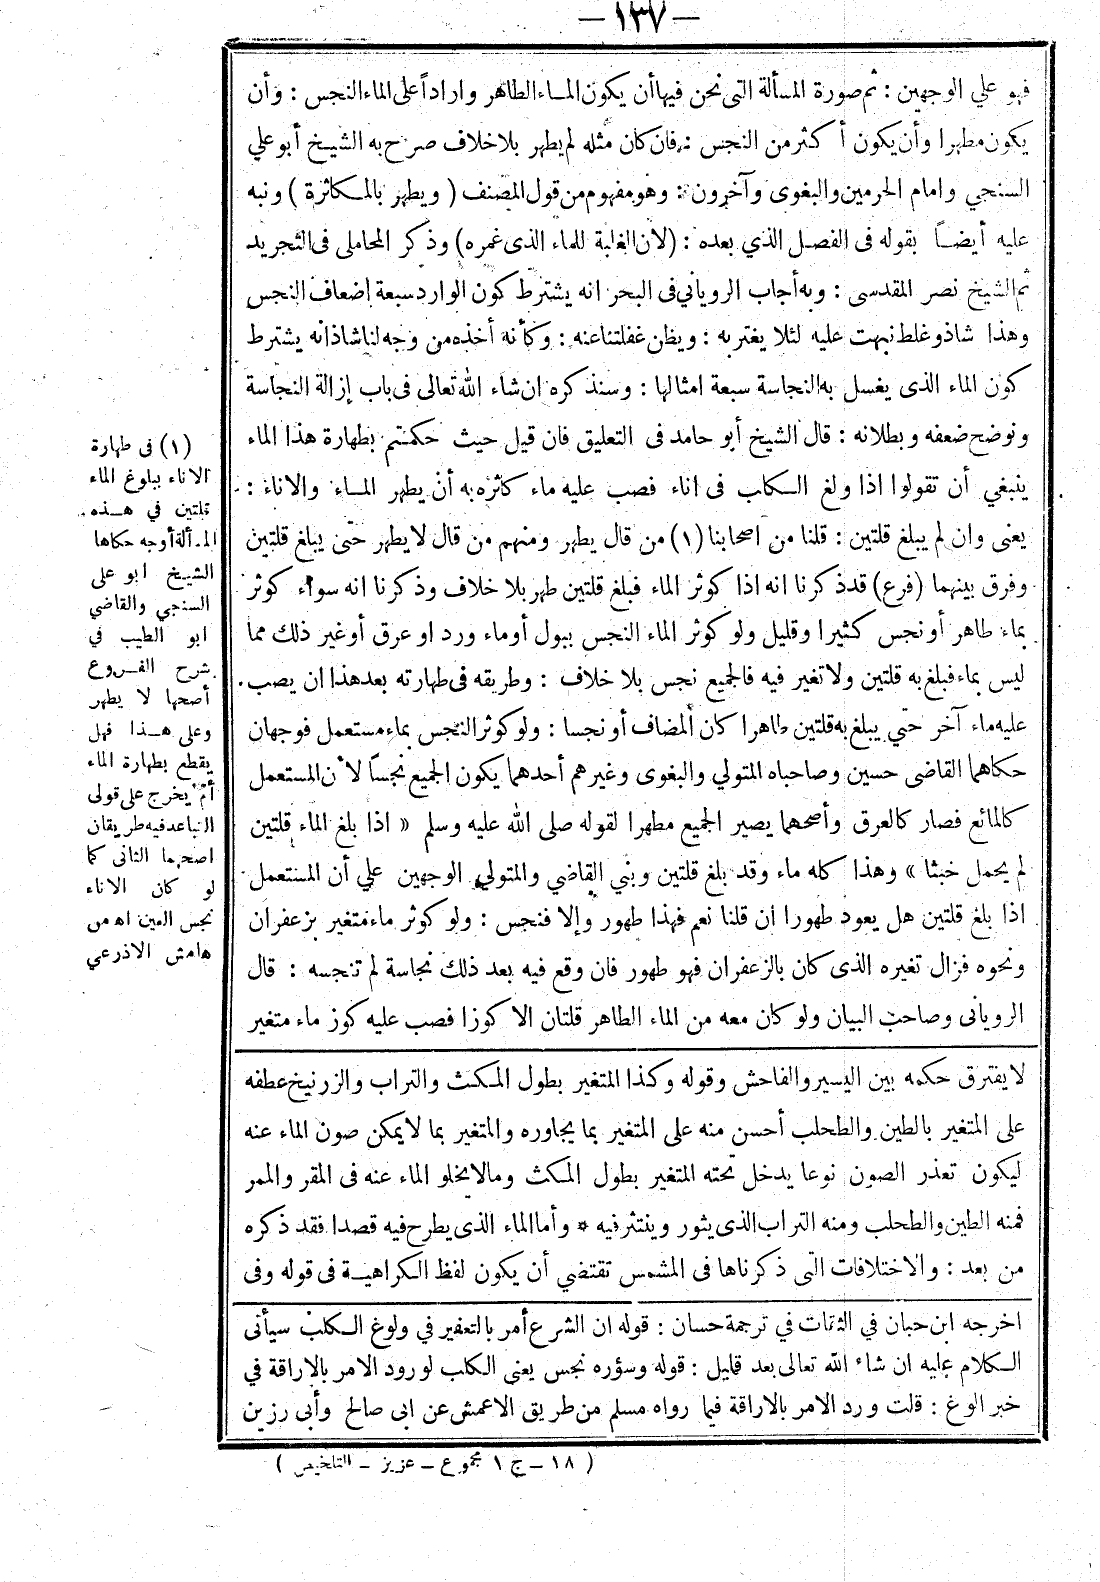 — ١٣٧ —
فهو علي الوجهين : ثم صورة المسألة التى نحن فيها أن يكون المـاء الطاهر واراداً على الماء النجس : وأن
يكون مطهرا وأن يكون أكثر من النجس : فان كان مثله لم يطهر بلا خلاف صرح به الشيخ أبو علي
السنجي وامام الحرمين والبغوى وآخرون : وهو مفهوم من قول المصنف ( ويطهر بالمـكاثرة ) ونبه
عليه أيضـاً بقوله فى الفصل الذي بعده : (لأن الغلبة للماء الذى غمره) وذكر المحاملى فى التجريد
ثم الشيخ نصر المقدسى : وبه أجاب الروياني فى البحر انه يشترط كون الوارد سبعة إضعاف النجس
وهذا شاذ وغلط نبهت عليه لئلا يغتر به : ويظن غفلتنا عنه : وكأنه أخذه من وجه لنا شاذ انه يشترط
كون الماء الذى يغسل به النجاسة سبعة امثالها : وسنذكره ان شاء الله تعالى فى باب إزالة النجاسة
ونوضح ضعفه وبطلانه : قال الشيخ أبو حامد فى التعليق فان قيل حيث حكمتم بطهارة هذا الماء
ينبغي أن تقولوا اذا ولغ الـكلب فى اناء فصب عليه ماء كاثره به أن يطهر المـاء والاناء :
يعنى وان لم يبلغ قلتين : قلنا من اصحابنا (١) من قال يطهر ومنهم من قال لا يطهر حتى يبلغ قلتين
وفرق بينهما (فرع) قد ذكرنا انه اذا كوثر الماء فبلغ قلتين طهر بلا خلاف وذكرنا انه سواء كوثر
بماء طاهر أو نجس كثيرا وقليل ولو كوثر الماء النجس ببول أو ماء ورد او عرق أو غير ذلك مما
ليس بماء فبلغ به قلتين ولا تغير فيه فالجميع نجس بلا خلاف : وطريقه فى طهارته بعد هذا ان يصب
عليه ماء آخر حتي يبلغ به قلتين طاهرا كان المضاف أو نجسا : ولو كوثر النجس بماء مستعمل فوجهان
حكاهما القاضى حسين وصاحباه المتولي والبغوى وغيرهم أحدهما يكون الجميع نجسًا لأن المستعمل
كالمائع فصار كالعرق وأصحهما يصير الجميع مطهرا لقوله صلى الله عليه وسلم « اذا بلغ الماء قلتين
لم يحمل خبثا » وهذا كله ماء وقد بلغ قلتين وبني القاضي والمتولي الوجهين علي أن المستعمل
اذا بلغ قلتين هل يعود طهورا ان قلنا نعم فهذا طهور وإلا فنجس : ولو كوثر ماء متغير بزعفران
ونحوه فزال تغيره الذى كان بالزعفران فهو طهور فان وقع فيه بعد ذلك نجاسة لم تنجسه : قال
الرويانى وصاحب البيان ولو كان معه من الماء الطاهر قلتان الا كوزا فصب عليه كوز ماء متغير
(١) فى طهارة
الاناء ببلوغ الماء
قلتين في هـذه
المسألة أوجه حكاها
الشيخ ابو على
السنجي والقاضي
ابو الطيب في
شرح الفـروع
أصحها لا يطهر
وعلى هـذا فهل
يقطع بطهارة الماء
أم يخرج على قولى
التباعد فيه طريقان
اصحهما الثانى كما
لو كان الاناء
نجس العين اه من
هامش الاذرعي
لا يفترق حكمه بين اليسير والفاحش وقوله وكذا المتغير بطول المـكث والتراب والزرنيخ عطفه
على المتغير بالطين والطحلب أحسن منه على المتغير بما يجاوره والمتغير بما لا يمكن صون الماء عنه
ليكون تعذر الصون نوعا يدخل تحته المتغير بطول المكث ومالا يخلو الماء عنه فى المقر والممر
فمنه الطين والطحلب ومنه التراب الذى يثور وينتثر فيه * وأما الماء الذى يطرح فيه قصدا فقد ذكره
من بعد : والاختلافات التى ذكرناها فى المشمس تقتضي أن يكون لفظ الـكراهيـة فى قوله وفى
اخرجه ابن حبان في الثقات في ترجمة حسان : قوله ان الشرع أمر بالتعفير في ولوغ الـكلب سيأتى
الـكلام عليه ان شاء الله تعالى بعد قليل : قوله وسؤره نجس يعنى الكلب لورود الامر بالاراقة في
خبر الوغ : قلت ورد الامر بالاراقة فيما رواه مسلم من طريق الاعمش عن ابى صالح وأبى رزين
( ١٨ – ج ١ مجموع – عزيز – التلخيص )